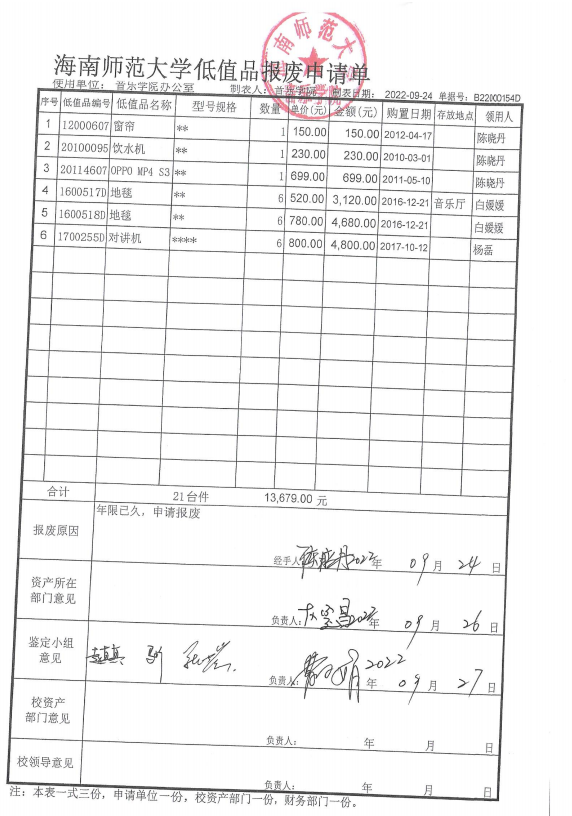 海南师范大学低值品报废申请单
使用单位： 音乐学院办公室 制表人： 制表日期： 2022-09-24 单据号： B22000154D
序号 低值品编号 低值品名称 型号规格 数量 单价(元) 金额(元) 购置日期 存放地点 领用人
1 12000607 窗帘 ** 1 150.00 150.00 2012-04-17 陈晓丹
2 20100095 饮水机 ** 1 230.00 230.00 2010-03-01 陈晓丹
3 20114607 OPPO MP4 S3 ** 1 699.00 699.00 2011-05-10 陈晓丹
4 1600517D 地毯 ** 6 520.00 3,120.00 2016-12-21 音乐厅 白媛媛
5 1600518D 地毯 ** 6 780.00 4,680.00 2016-12-21 白媛媛
6 1700255D 对讲机 **** 6 800.00 4,800.00 2017-10-12 杨磊
合计 21台件 13,679.00 元
报废原因 年限已久，申请报废
经手人 陈晓丹 2022 年 09 月 24 日
资产所在
部门意见
负责人： 2022 年 09 月 26 日
鉴定小组
意见
负责人： 2022 年 09 月 27 日
校资产
部门意见
负责人： 年 月 日
校领导意见
负责人： 年 月 日
注：本表一式三份，申请单位一份，校资产部门一份，财务部门一份。